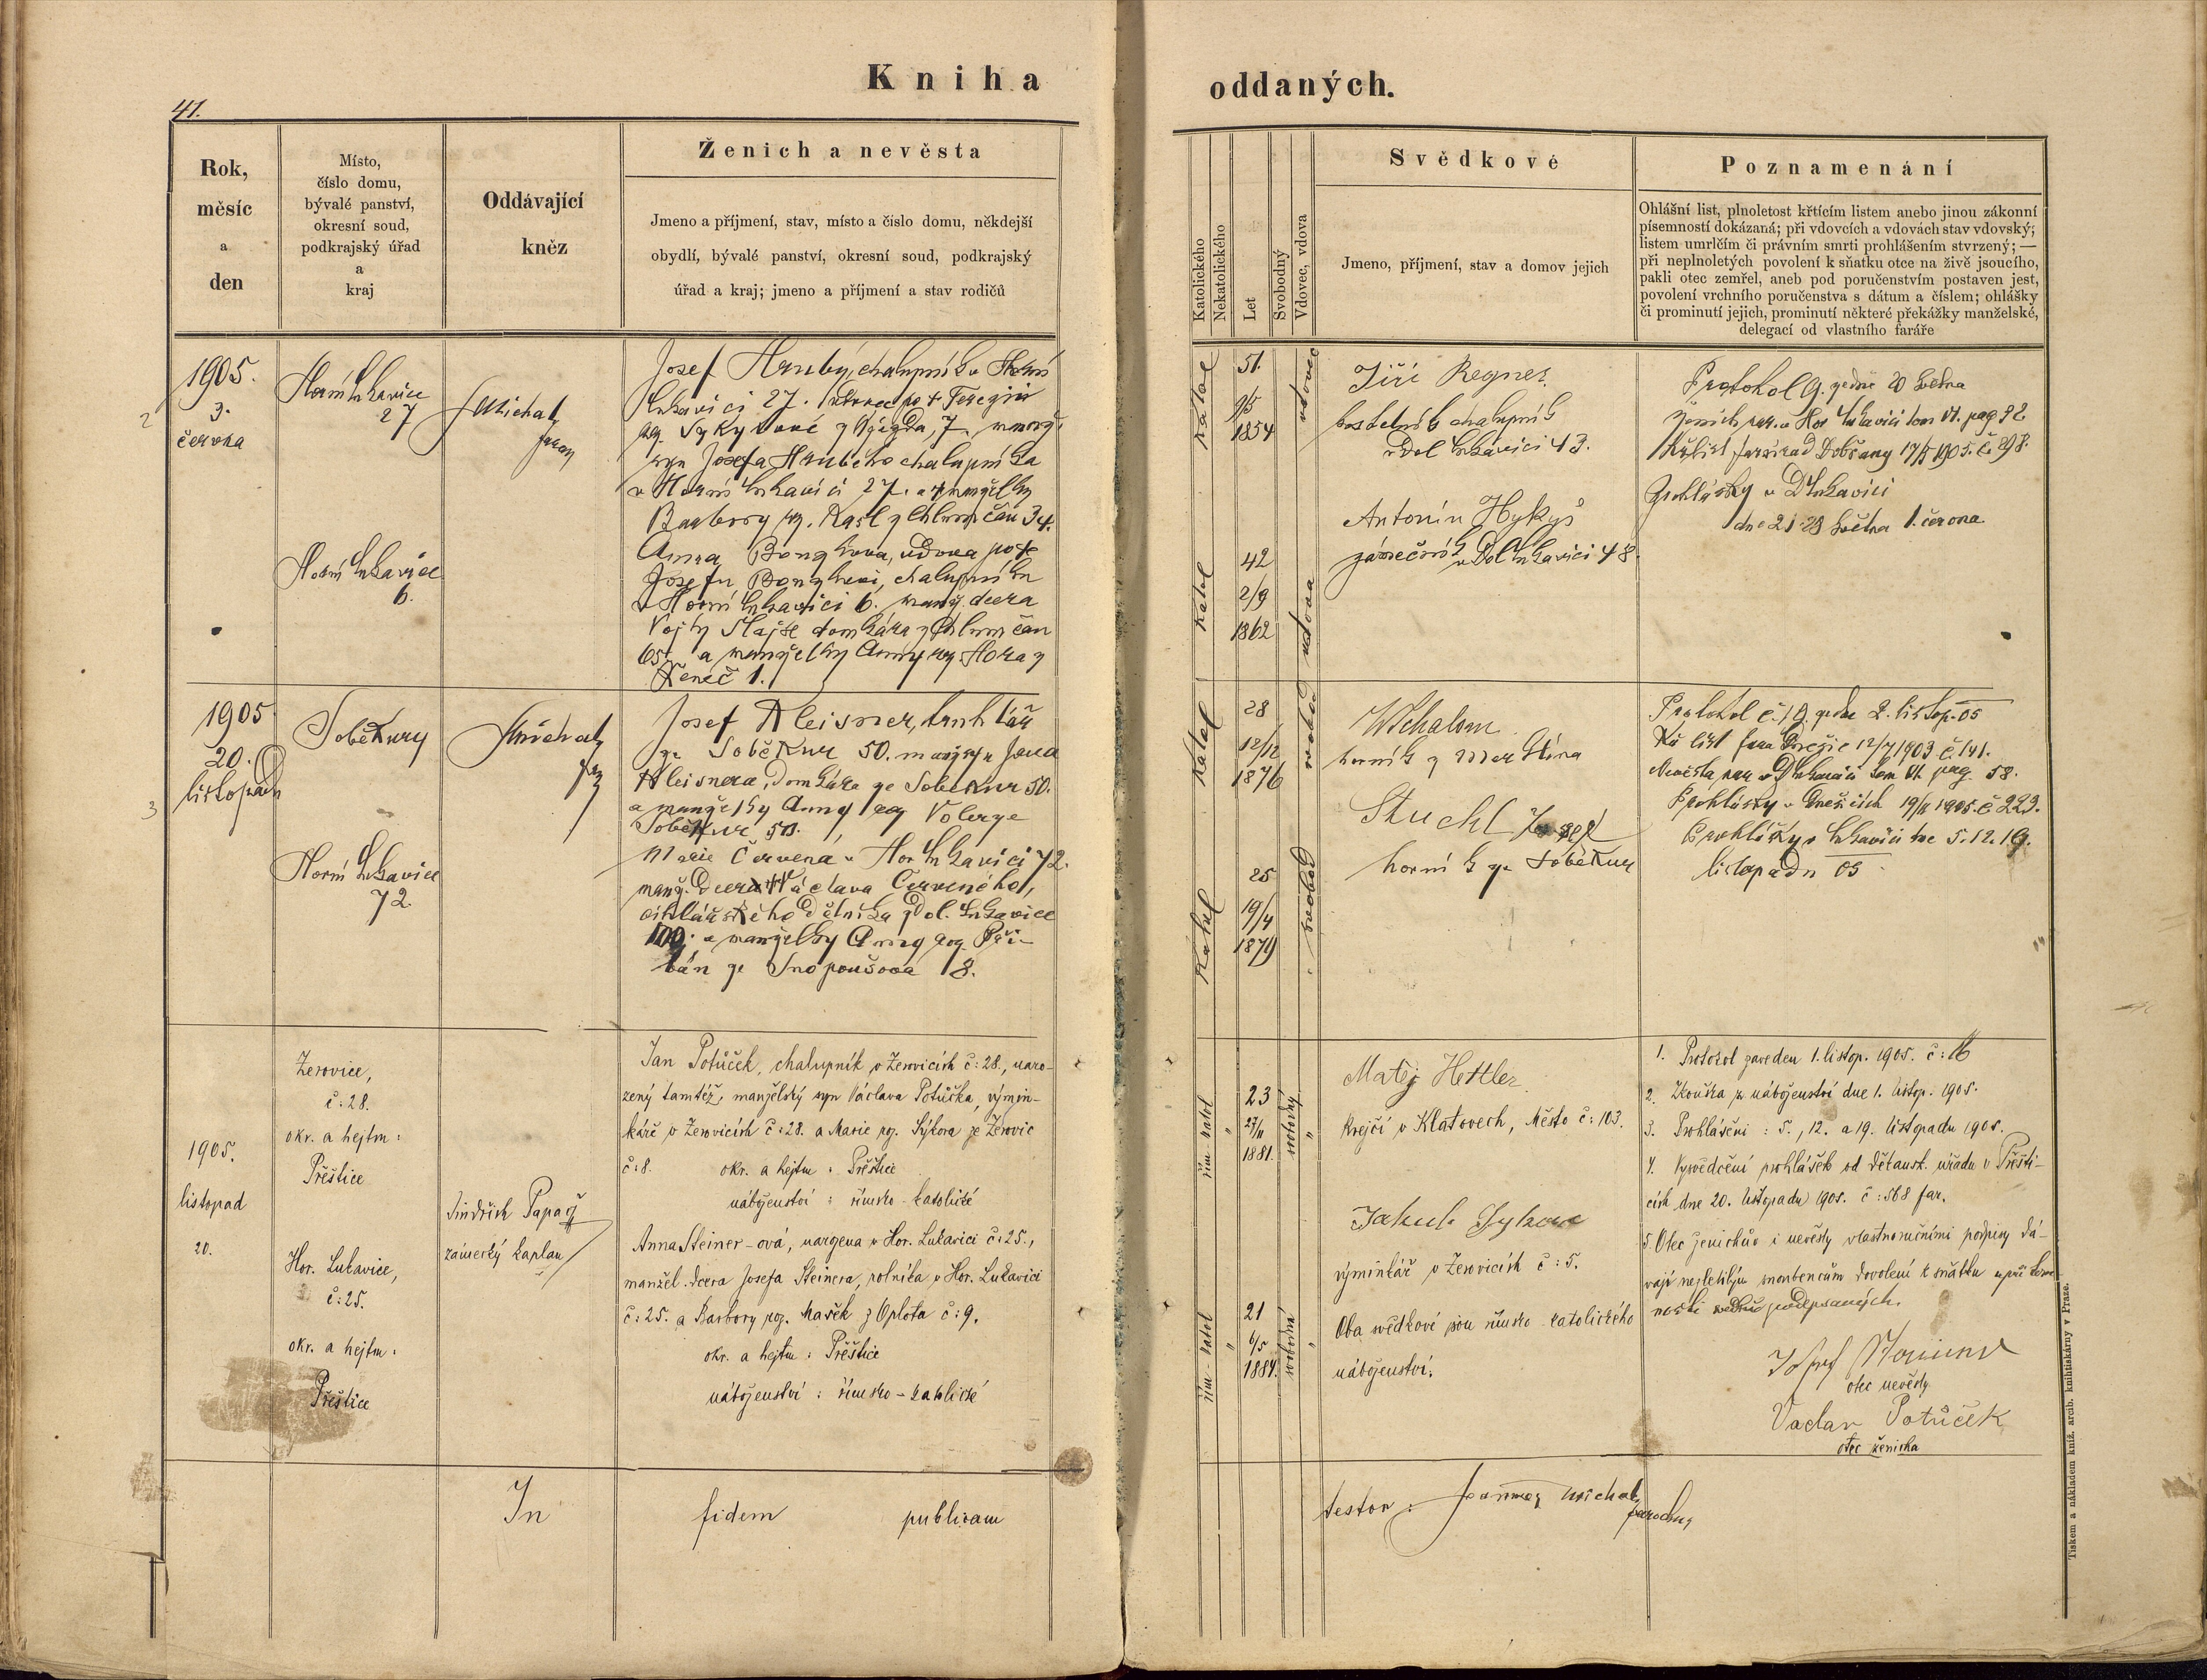 Kniha
oddaných.
41.
Rok,
měsíc
a
den
Místo,
číslo domu,
bývalé panství,
okresní soud,
podkrajský úřad
a
kraj
Oddávající
kněz
Ženich a nevěsta
Jmeno a příjmení, stav, místo a číslo domu, někdejší
obydlí, bývalé panství, okresní soud, podkrajský
úřad a kraj; jmeno a příjmení a stav rodičů
Katolického
Nekatolického
Let
Svobodný
Vdovec, vdova
Svědkové
Jmeno, příjmení, stav a domov jejich
Poznamenání
Ohlášní list, plnoletost křtícím listem anebo jinou zákonní
písemností dokázaná; při vdovcích a vdovách stav vdovský;
listem umrlčím či právním smrti prohlášením stvrzený; —
při neplnoletých povolení k sňatku otce na živě jsoucího,
pakli otec zemřel, aneb pod poručenstvím postaven jest,
povolení vrchního poručenstva s dátum a číslem; ohlášky
či prominutí jejich, prominutí některé překážky manželské,
delegací od vlastního faráře
2
1905.
3.
června
Horní Lukavice
27
J Michal
farář
Josef Hrubý, chalupník v Horní
Lukavici 27. vdovec po † Terezii
syn Josefa Hrubého chalupníka
v Horní Lukavici 27. a † manželky
Barbory roz. z Chlumčan 34.
Horní Lukavice
6.
Anna vdova po †
Josefu chalupníku
v Horní Lukavici 6. manž. dcera
Vojty domkáře z Chlumčan
65. a manželky Anny roz. Hora z
1.
katol
51.
9/5
1854
vdovec
Jiří Regner
kostelník chalupník
v Dol Lukavici 43.
Antonín Hykyš
zámečník v Dol Lukavici 48.
katol
42
2/9
1862
vdova
Protokol 9. ze dne 20 května
Ženich nar. v Hor Lukavici tom VI. pag 92
Dobřany 17/5 1905. č. 298.
Prohlášky v DLukavici
dne 21. 28 května 1. června
3
1905
20.
listopadu
Soběkury
J Michal
Josef Kleisner, truhlář
ze Soběkur 50. manž syn Jana
Kleisnera, domkáře ze Soběkur 50.
a manželky Anny roz Volec ze
Soběkur 50.
Horní Lukavice
72.
Marie Červená v Hor Lukavici 72.
manž. dcera Václava Červeného,
cihlářského dělníka z Dol. Lukavice
100. a manželky Anny roz. Při-
báň ze Snopoušova 18.
katol
28
12/12
1876
svobod
horník z Merklína
Stuchl Josef
horník ze Soběkur
katol
25
19/4
1879
svobod
Protokol č. 19. ze dne 2. listop. 05
Kř list fara Dnešic 12/7 1903 č. 141.
Nevěsta nar v DLukavici tom VI. pag. 58.
Prohlášky v Dnešicích 19/11 1905. č. 223.
Prohlášky v Lukavici dne 5. 12. 19.
listopadu 05
1905.
listopad
20.
Žerovice,
č: 28.
okr. a hejtm:
Přeštice
Hor. Lukavice,
č: 25.
okr. a hejtm:
Přeštice
Jindřich Papaž
zámecký kaplan
Jan Potůček, chalupník v Žerovicích č: 28., naro-
zený tamtéž, manželský syn Václava Potůčka, výmin-
káře v Žerovicích č: 28. a Marie roz. Sýkora ze Žerovic
č: 8. okr. a hejtm: Přeštice
náboženství: římsko-katolické
Anna Steiner-ová, narozena v Hor. Lukavici č: 25.,
manžel. dcera Josefa Steinera, rolníka v Hor. Lukavici
č: 25. a Barbory roz. Mašek z Oplota č: 9.
okr. a hejtm: Přeštice
náboženství: římsko-katolické
řím-katol
"
23
27/11
1881.
svobodný
"
Matěj Hettler
krejčí v Klatovech, Město č: 103.
Jakub Sykora
výminkář v Žerovicích č: 5.
Oba svědkové jsou římsko-katolického
náboženství.
řím-katol
"
21
6/5
1884.
svobodná
"
1. Protokol zaveden 1. listop. 1905. č: 16
2. Zkouška z náboženství dne 1. listop. 1905.
3. Prohlášení: 5., 12. a 19. listopadu 1905.
4. Vysvědčení prohlášek od děkansk. úřadu v Přešti-
cích dne 20. listopadu 1905. č: 568 far.
5. Otec ženichův i nevěsty vlastnoručními podpisy dá-
vají nezletilým snoubencům dovolení k sňatku u přítom-
nosti svědků podepsaných.
otec nevěsty
Václav Potůček
otec ženicha
In fidem publicam
testor: Joannes Michal
parochus
Tiskem a nákladem kníž. arcib. knihtiskárny v Praze.